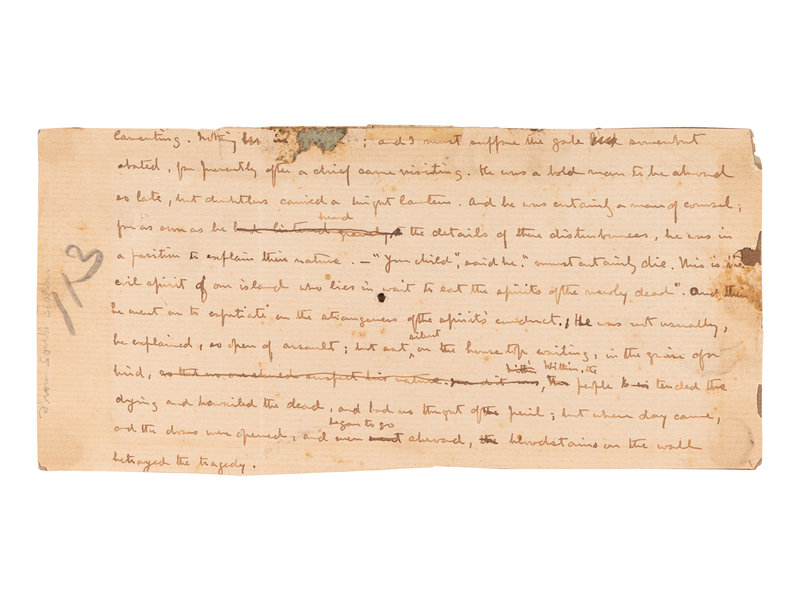 lamenting. Nothing in ; and I must suppose the gale somewhat
abated, for presently after a chief came visiting. He was a bold man to be abroad
so late, but doubtless carried a bright lantern. And he was certainly a man of counsel;
heard
for as soon as he had listened gravely, the details of these disturbances, he was in
a position to explain their nature. — "Your child", said he, "must certainly die. This is the
evil spirit of our island who lies in wait to eat the spirits of the newly dead". And then
he went on to expatiate on the strangeness of the spirit's conduct. He was not usually,
silent
he explained, so open of assault; but sat, on the house top waiting, in the guise of a
within Within, the
bird, so that no one should suspect his nature. people tended the
dying and bewailed the dead, and had no thought of the peril; but when day came,
began to go
and the doors were opened, and men went abroad, the bloodstains on the wall
betrayed the tragedy.
113
from South Seas